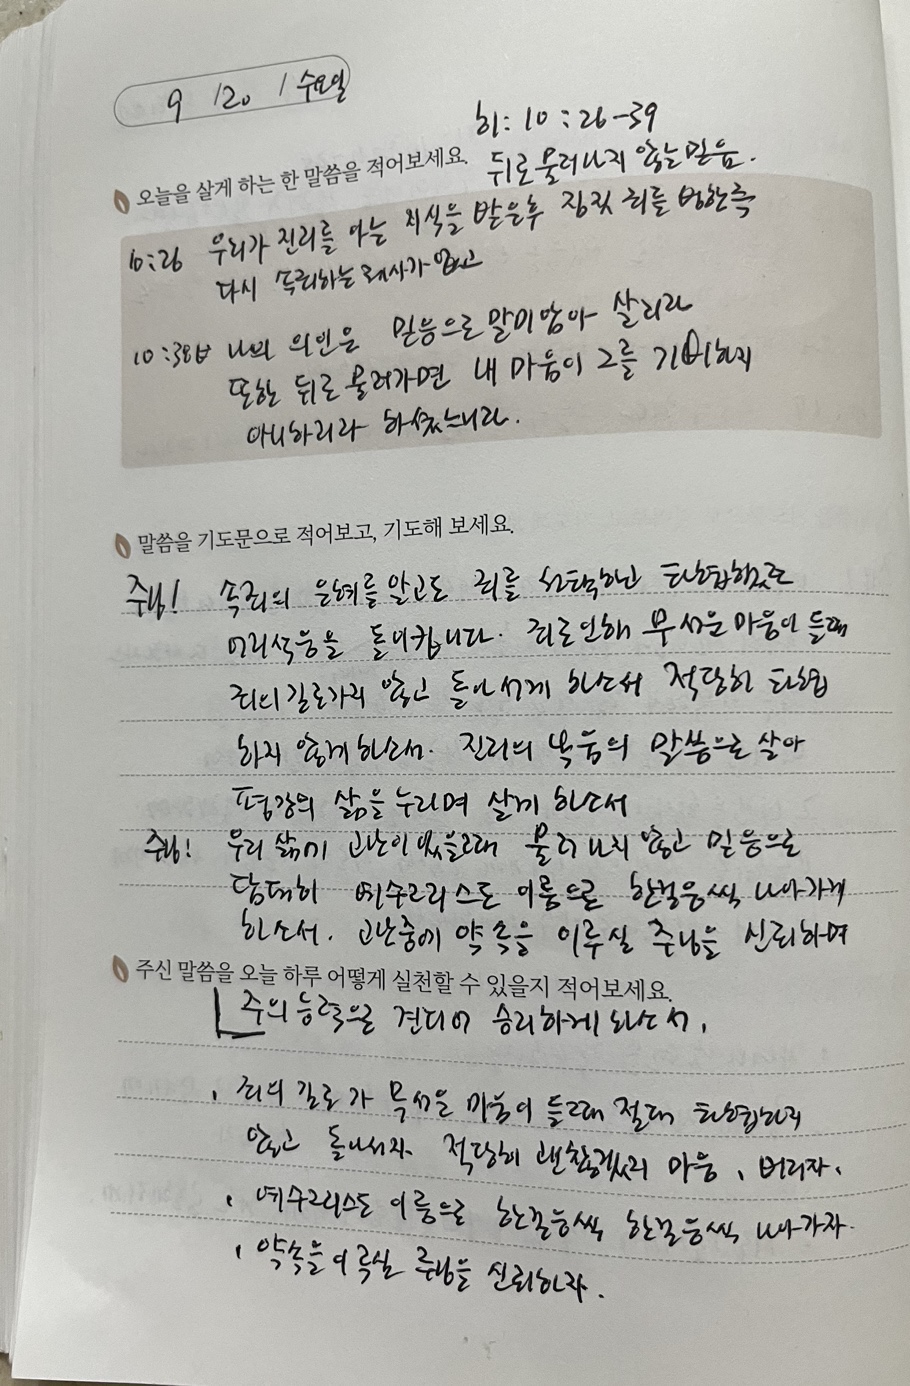 9 / 20 / 수요일
히: 10 : 26-39
뒤로 물러나지 않는 믿음.
오늘을 살게 하는 한 말씀을 적어보세요.
10:26 우리가 진리를 아는 지식을 받은후 짐짓 죄를 범한즉
다시 속죄하는 제사가 없고
10:38 나의 의인은 믿음으로 말미암아 살리라
또한 뒤로 물러가면 내 마음이 그를 기뻐하지
아니하리라 하셨느니라.
말씀을 기도문으로 적어보고, 기도해 보세요.
주님! 속죄의 은혜를 알고도 죄를 선택하고 타협했던
어리석음을 돌이킵니다. 죄로인해 무서운 마음이 들때
죄의길로가지 않고 돌아서게 하소서 적당히 타협
하지 않게하소서. 진리의 복음의 말씀으로 살아
평강의 삶을 누리며 살게 하소서
주님! 우리 삶에 고난이 있을때 물러나지 않고 믿음으로
담대히 예수그리스도 이름으로 한걸음씩 나아가게
하소서. 고난중에 약속을 이루실 주님을 신뢰하며
주신 말씀을 오늘 하루 어떻게 실천할 수 있을지 적어보세요.
주의 능력으로 견디어 승리하게 하소서.
· 죄의 길로 가 무서운 마음이 들때 절대 타협하지
않고 돌아서자 적당히 괜찮겠지 마음, 버리자.
· 예수그리스도 이름으로 한걸음씩 한걸음씩 나아가자.
· 약속을 이루실 주님을 신뢰하자.